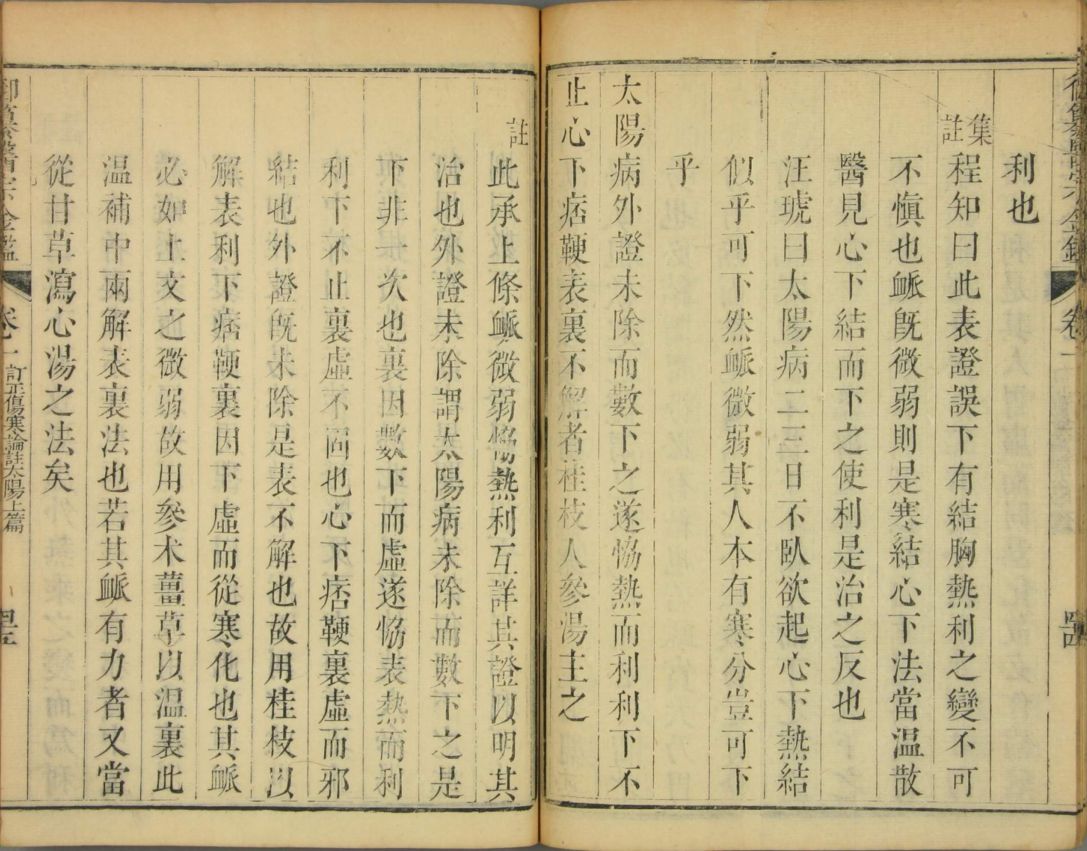 利也
集註
程知曰此表證誤下有結胸熱利之變不可
不慎也䘑旣微弱則是寒結心下法當温散
醫見心下結而下之使利是治之反也
汪琥曰太陽病二三日不臥欲起心下熱結
似乎可下然䘑微弱其人本有寒分豈可下
乎
太陽病外證未除而數下之遂恊熱而利利下不
止心下痞鞕表裏不解者桂枝人參湯主之
註
此承上條䘑微弱恊熱利互詳其證以明其
治也外證未除謂太陽病未除而數下之是
下非一次也裏因數下而虛遂恊表熱而利
利下不止裏虛不固也心下痞鞕裏虛而邪
結也外證旣未除是表不解也故用桂枝以
解表利下痞鞕裏因下虛而從寒化也其䘑
必如上文之微弱故用參术薑草以温裏此
温補中兩解表裏法也若其䘑有力者又當
從甘草瀉心湯之法矣
御纂醫宗金鑑
卷一
訂正傷寒論註太陽上篇